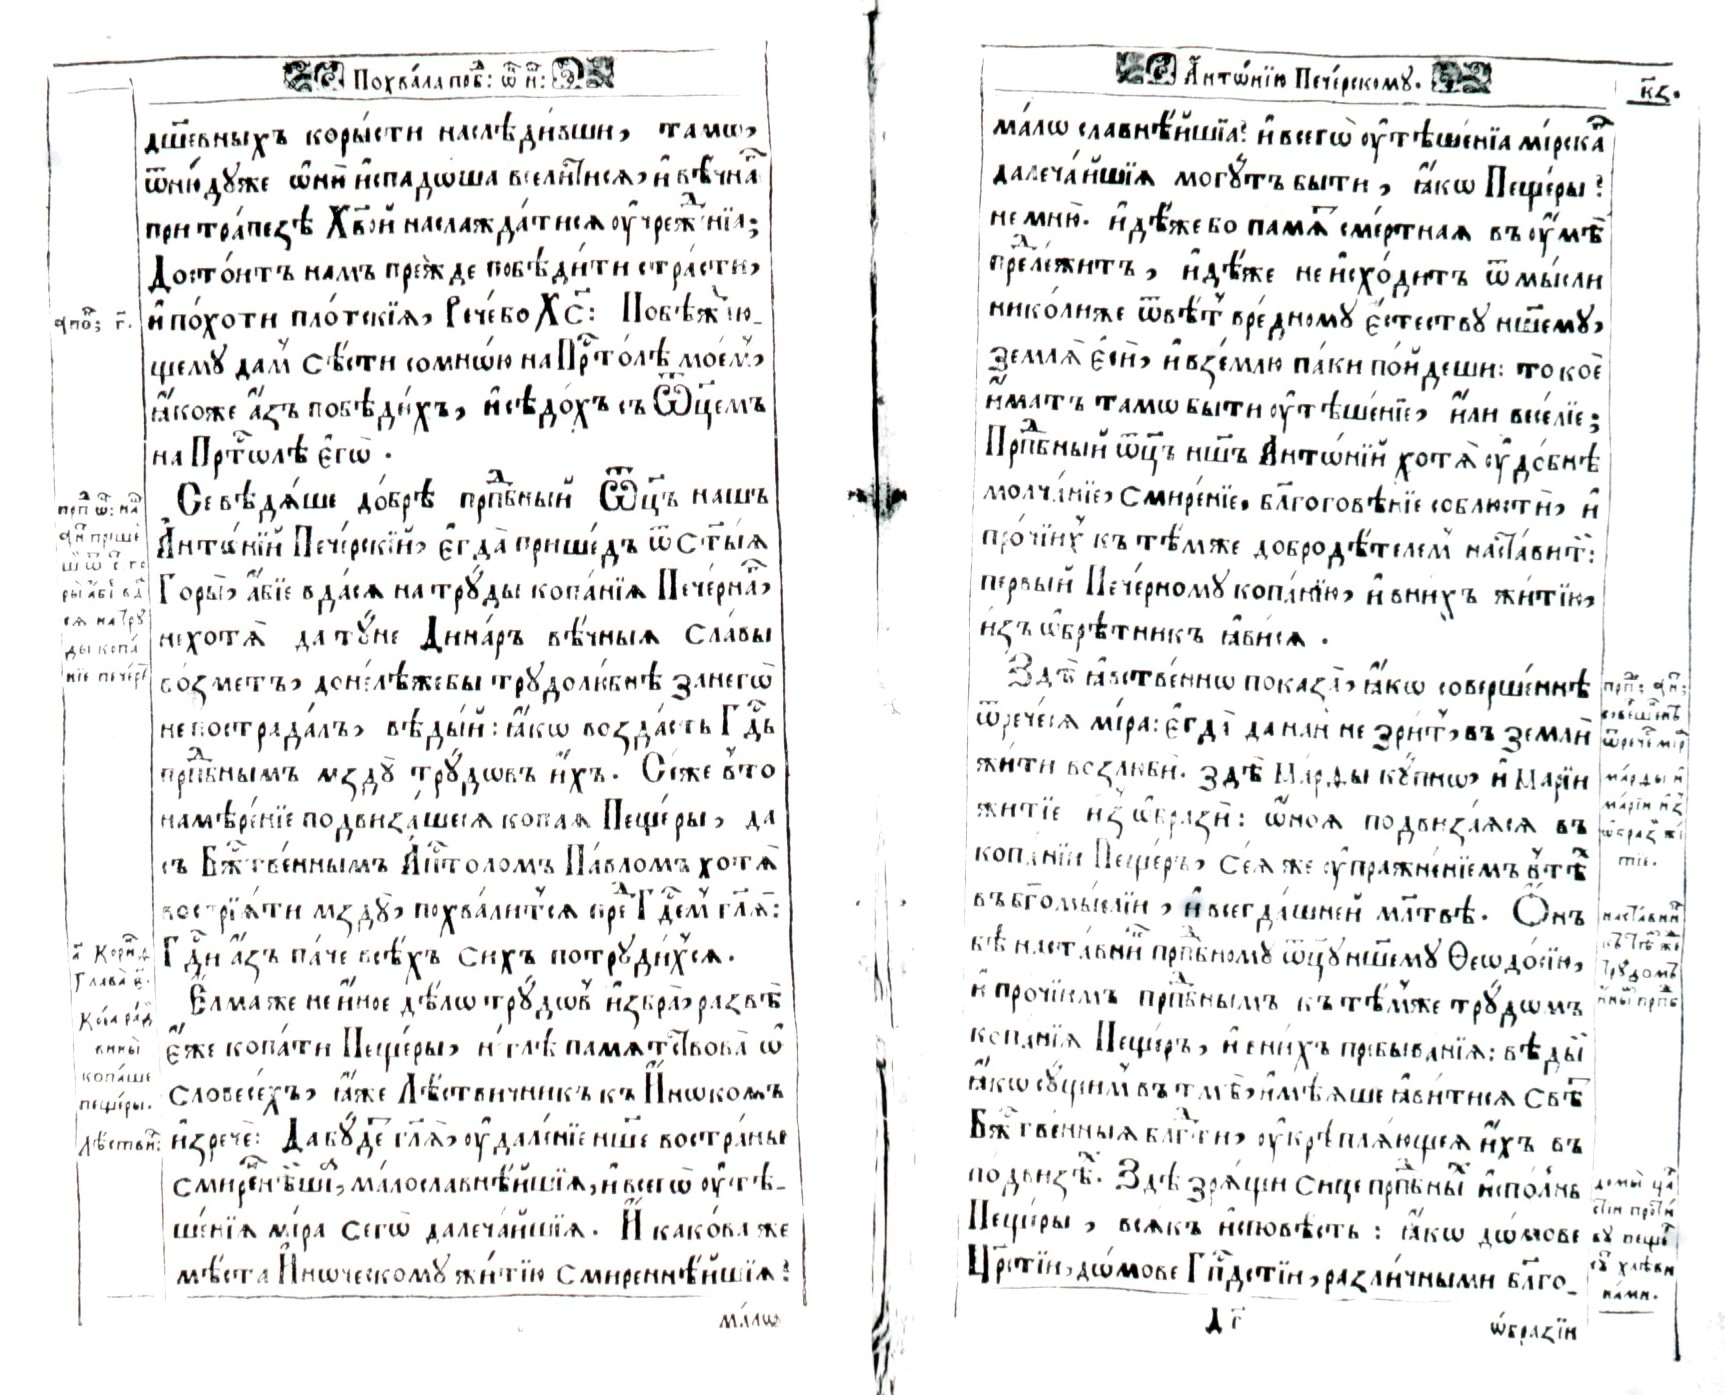 Похва́ла по́в: ѿ н:
дш҃евныхъ коры́сти наслѣди́вши, тамѡ,
ѿню́дуже ѻ҆нѝ и҆спадо́ша вселѝтися, и҆ вѣ́чна
при тра́пезѣ Хв҃ой наслажда́тися оу҆чреж нїа;
Досто́итъ намъ пре́жде побѣди́ти стра́сти,
и҆ по́хоти пло́тскїя, Рече́бо Хс҃: Побѣжⷣю-
щему дамъ сѣ́сти сомно́ю на Прⷭ҇то́лѣ мое́мъ,
ꙗ҆́коже а҆́зъ побѣди́хъ, и҆ сѣдо́хъ съ Ѿц҃емъ
на Прⷭ҇то́лѣ є҆гѡ̀.
а҆поⷦ҇; г҃.
Се вѣ́дяше до́брѣ прпⷣбный Ѿц҃ъ нашъ
А҆нтѡ́нїй Пече́рскїй, є҆гда̀ прише́дъ ѿ Ст҃ы́я
Горы̀, а҆́бїе вда́ся на тру́ды копа́нїя Пече́рнаⷢ҇,
нехотя̀ да ту́не Дина́ръ вѣ́чныя Сла́вы
во́зметъ, доне́лѣжебы трудолю́бнѣ занегѡ̀
непострада́лъ, вѣ́дый: ꙗ҆́кѡ возда́стъ Гдⷭ҇ь
прпⷣбнымъ мзду̀ трудѡ́въ и҆́хъ. Се́же в̾то
намѣ́ренїе подвиза́шеся копая Пеще́ры, да
съ Бжⷭ҇тве́ннымъ А҆пⷭ҇толомъ Па́вломъ хотя̀
воспрїя́ти мзду̀, похва́лится преⷣ Гдⷭ҇емъ гл҃я:
Гдⷭ҇и а҆́зъ па́че всѣ́хъ сихъ потруди́хся.
Є҆́лмаже не и҆́ное дѣ́лѡ трудѡ́въ и҆збра̀, развѣ
є҆́же копа́ти Пеще́ры, и҆
словесе́хъ, ꙗ҆́же Лѣ́ствичникъ къ И҆́нокомъ
и҆зречѐ: Да бу́деⷮ гл҃я, оу҆дале́нїе на́ше востра́нье
смире́нѣйшїⷯ, малославнѣ́йшїя, и҆ всегѡ̀ оу҆тѣ-
ше́нїя мі́ра сегѡ̀ далеча́йшїя. И҆ како́ва же
мѣ́ста И҆́ноческому житїю̀ Смиреннѣ́йшїя?
прпⷣ ѿ: на
а҆н прише
ры̀ а҆бі вда
ся на тру
ды копа́
нїе пече́р
а҃ Кори́нⷴ
Глава̀ є҃.
Коѐа ра́ди
вины̀
копа́ше
пеще́ры.
лѣ́стви:
ма́лѡ
А҆нтѡ́нїю Пече́рскому.
к҃з.
ма́лѡ славнѣ́йшїа? и҆ всегѡ̀ оу҆тѣше́нїа мі́рскаⷢ҇
далеча́йшїя могу́тъ бы́ти, ꙗ҆́кѡ Пеще́ры?
не мню̀. и҆дѣ́жебо памяⷮ сме́ртная въ оу҆мѣ̀
прⷣеле́житъ, и҆дѣ́же не и҆схо́дитъ ѿ мы́сли
нико́лиже ѿвѣ́тъ вре́дному є҆стеству нш҃ему,
земля̀ є҆сѝ, и҆ взе́млю па́ки по́йдеши: то коѐ
и҆́мать тамѡ бы́ти оу҆тѣше́нїе, и҆лѝ весе́лїе;
Прпⷣбный ѿц҃ъ нш҃ъ А҆нтѡ́нїй хотя̀ оу҆до́бнѣ
молча́нїе, смире́нїе, бл҃гоговѣ́нїе соблюстѝ, и҆
про́чїиⷯ къ тѣ́мже добродѣ́телемъ наста́витⷭ҇:
первый Пече́рному копа́нїю, и҆ вни́хъ житїю̀,
и҆зъѡбрѣ́тникъ ꙗ҆ви́ся.
Здѣ̀ ꙗ҆́вственнѡ показа̀, ꙗ҆́кѡ соверше́ннѣ
ѿрече́ся мі́ра: є҆гда̀ да нилѝ не зри́тъ, въ землѝ
жи́ти возлюбѝ. здѣ̀ Ма́рѳы ку́пнѡ, и҆ Марі́и
житїѐ и҆зѡбразѝ: ѻ҆́ноя подвиза́яся въ
копа́нїи Пеще́ръ, Сея́же оу҆пражне́нїемъ в̾тѣ
въ бг҃омы́слїи, и҆ всегда́шней мл҃твѣ. О҆́нъ
бѣ̀ наста́вниⷦ҇ прпⷣбному ѿц҃у нш҃ему Ѳеѡдо́сїю,
и҆ про́чїимъ прпⷣбнымъ къ тѣ́мже трудо́мъ
копа́нїя Пеще́ръ, и҆ в ни́хъ пребыва́нїя: вѣ́дый
ꙗ҆́кѡ су́щимъ въ тмѣ̀, и҆мѣ́яше ꙗ҆ви́тися Свѣⷮ
Бжⷭ҇тве́нныя бл҃года́ти, оу҆крѣпля́ющея и҆́хъ въ
по́двизѣⷯ. Здѣ̀ зря́щи сице прпⷣбныⷯ и҆спо́лнь
Пеще́ры, всякъ и҆сповѣ́сть: ꙗ҆́кѡ до́мове
Црⷭ҇тїи, до́мове Гпⷭ҇дстїи, разли́чными бл҃го-
прпⷣ: а҆н:
соверше́нъ
ѿрече́ мір
ма́рѳы и҆
марі́и и҆з
ѡбраз жи
тїе.
наста́вни
къ тѣ́ же
трудомъ
и҆ны̀ прпⷣб
домы̀ цⷭ҇а
ву пеще́
хлѣ́ви
на́ми.
Д г҃
ѡ҆́бразїи